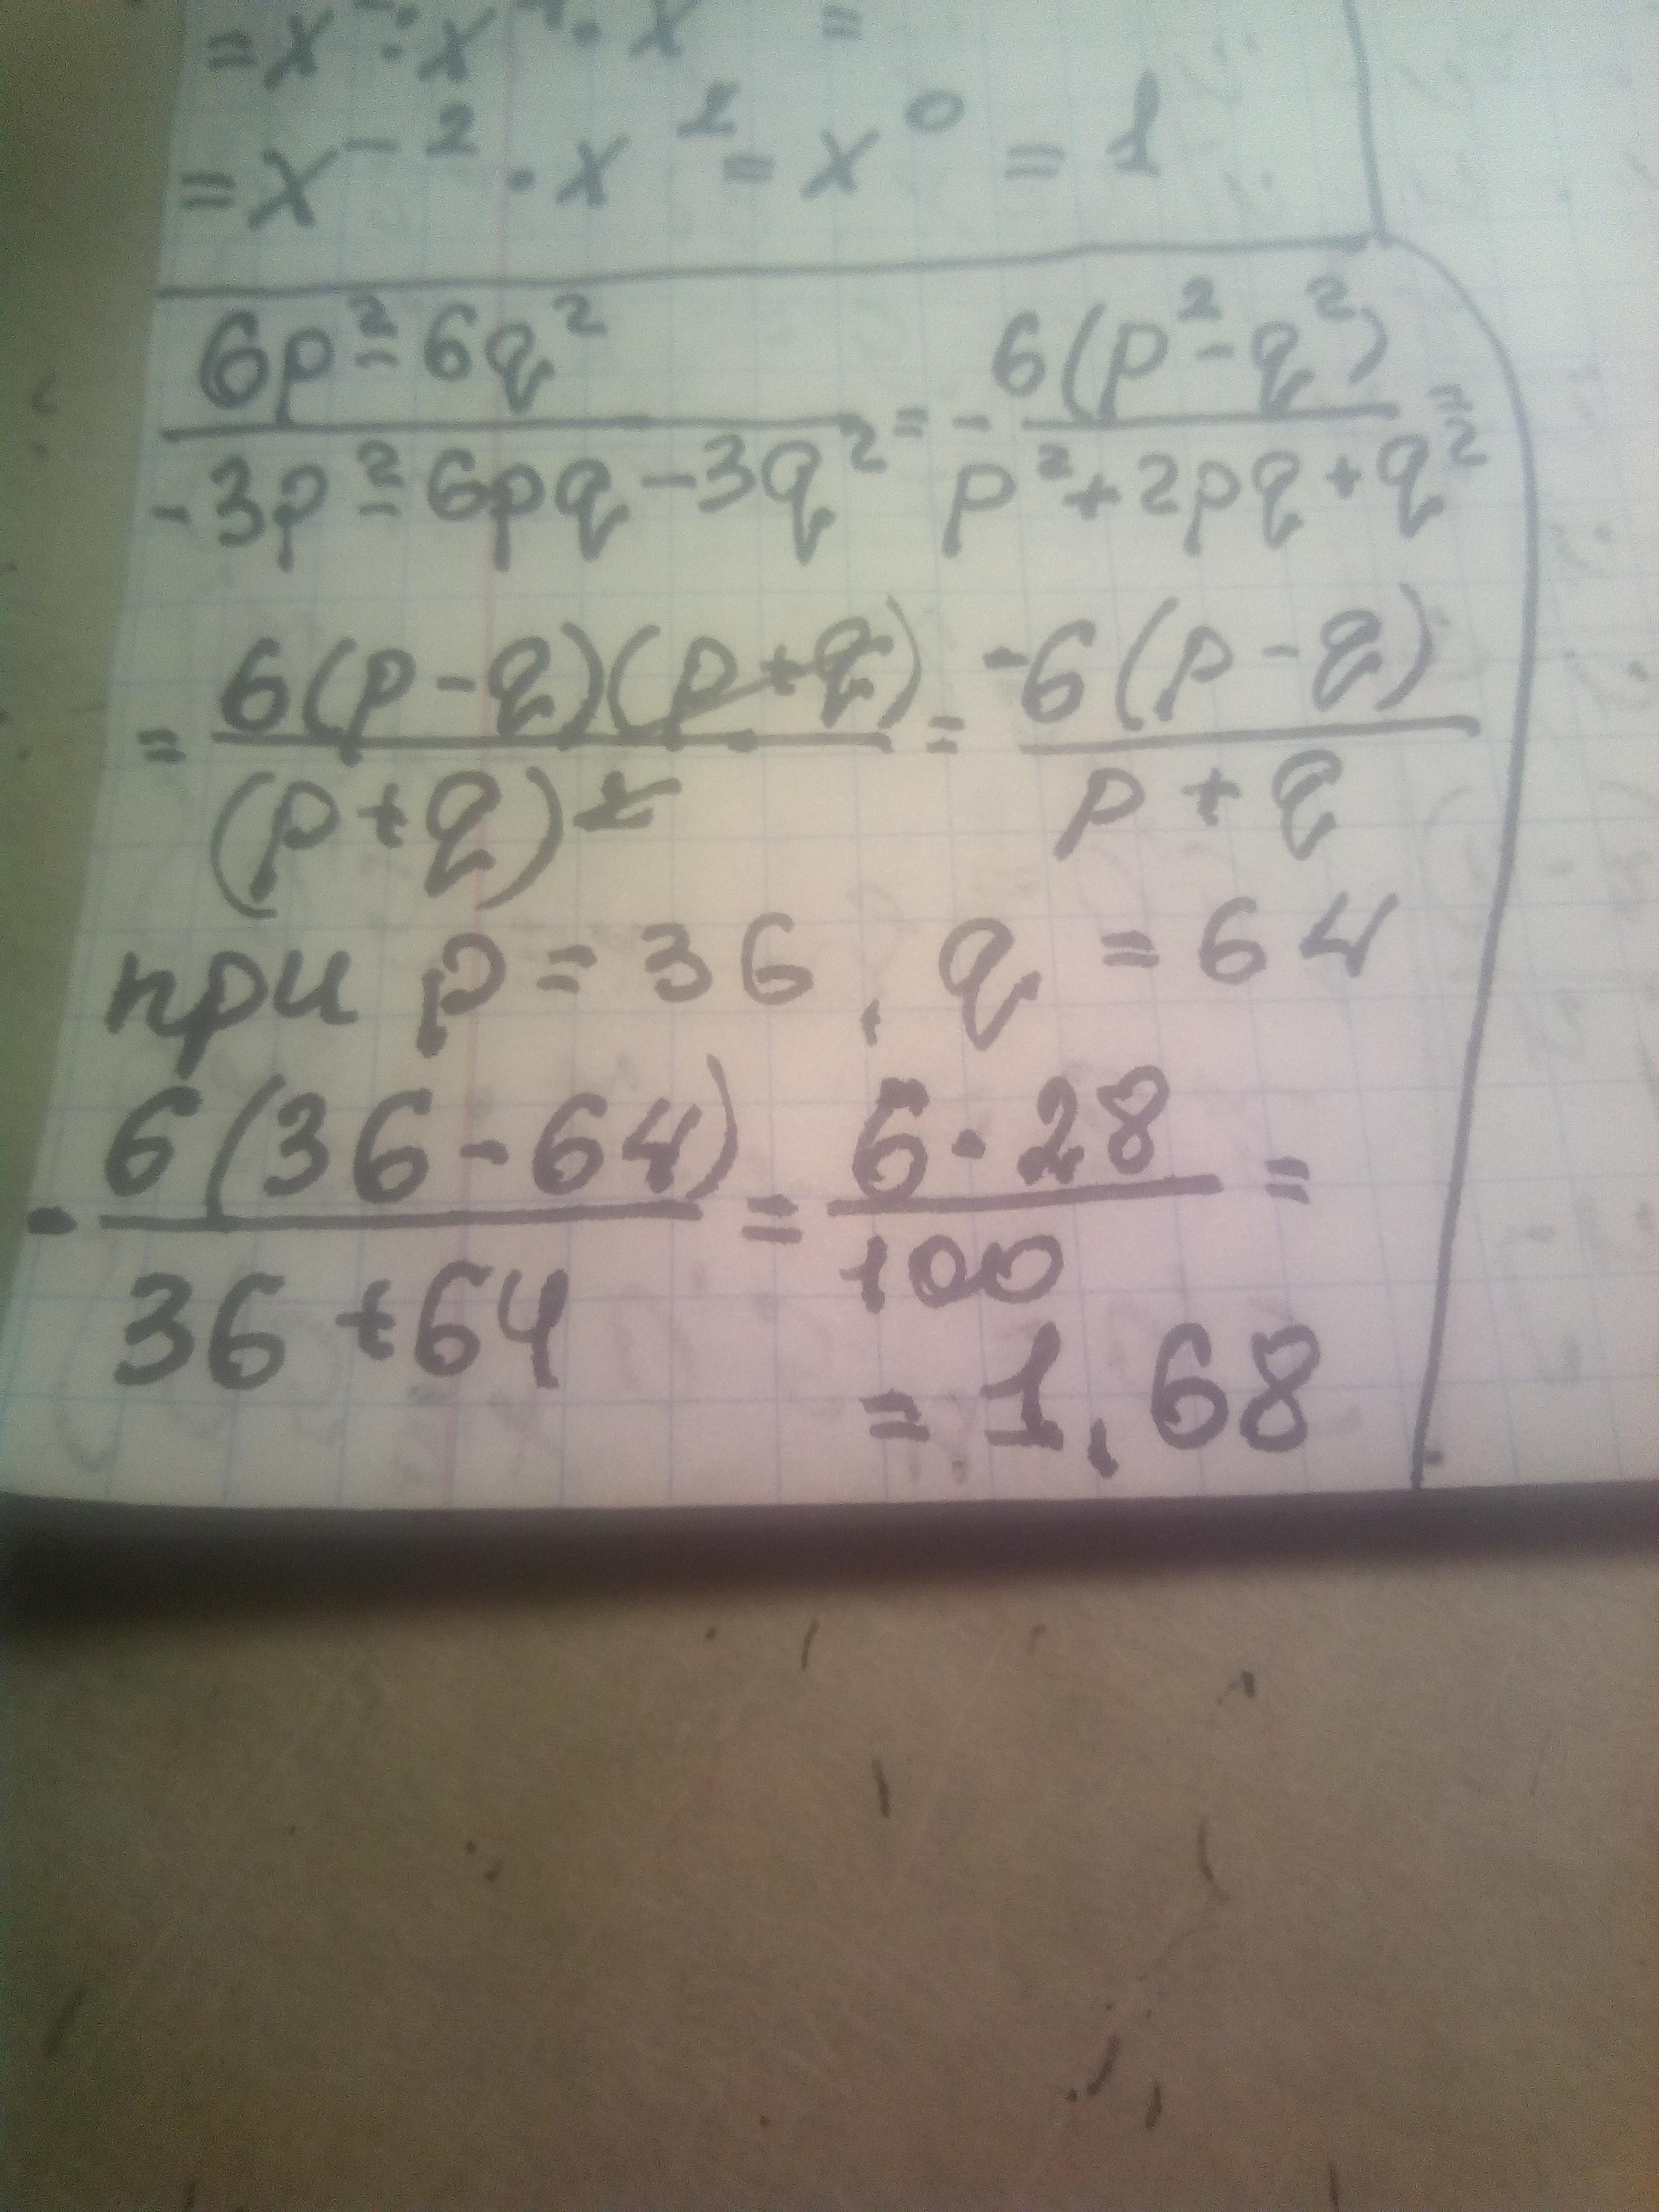 = x · x =
= x⁻² · x² = x⁰ = 1
6p² - 6q² / -3p² - 6pq - 3q² = - 6(p² - q²) / p² + 2pq + q² =
= 6(p - q)(p + q) / (p + q)² = -6(p - q) / p + q
при p = 36, q = 64
- 6(36 - 64) / 36 + 64 = 6 · 28 / 100 =
= 1,68